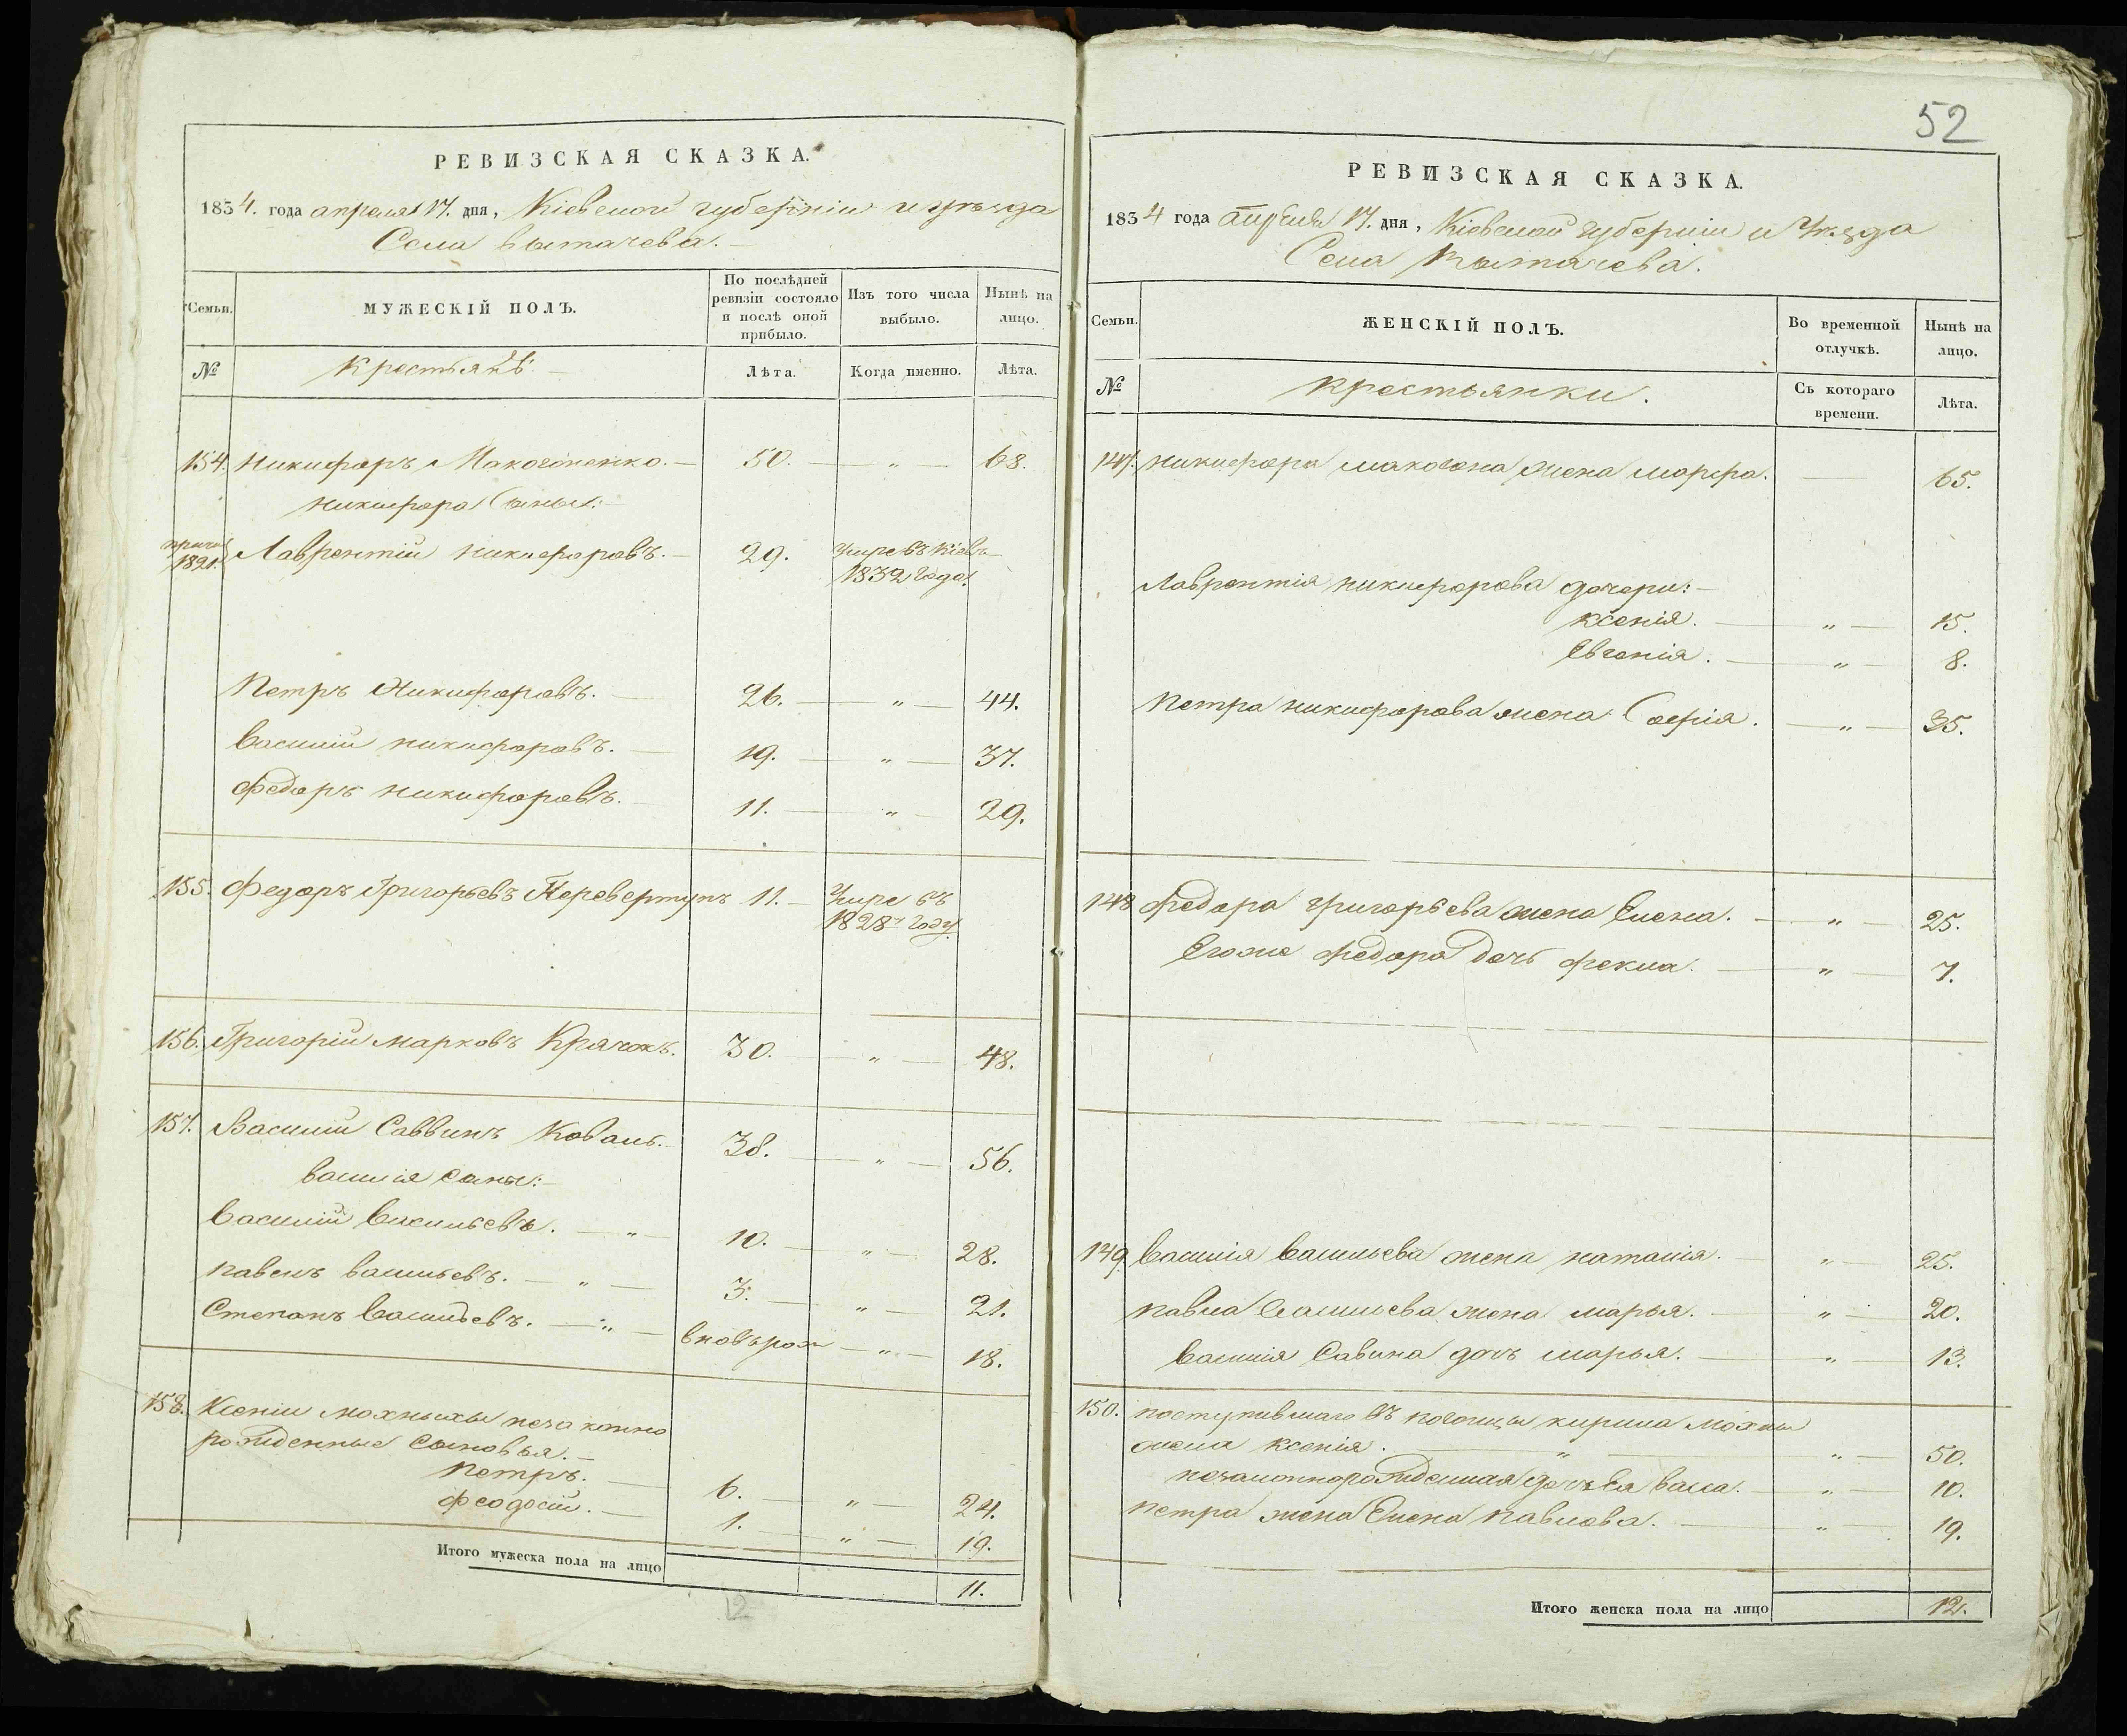 РЕВИЗСКАЯ СКАЗКА.
1834. года апреля 17. дня, Кіевской губерніи и уѣзда
Села Вытачева.
Семьи.
МУЖЕСКІЙ ПОЛЪ.
По послѣдней ревизіи состояло и послѣ оной прибыло.
Изъ того числа выбыло.
Нынѣ на лицо.
№
Крестьянъ.
Лѣта.
Когда именно.
Лѣта.
154. Никифоръ Макогоненко. 50. „ 68.
Никифора Сыны:
1821. Лаврентій Никифоровъ. 29. Умре въ Кіевѣ
1832 года
Петръ Никифоровъ. 26. „ 44.
Василій Никифоровъ. 19. „ 37.
Федоръ Никифоровъ. 11. „ 29.
155. Федоръ Григорьевъ Перевертунъ 11. Умре въ
1828 году
156. Григорій Марковъ Крячокъ. 30. „ 48.
157. Василій Саввинъ Коваль. 38. „ 56.
Василія сыны:
Василій Васильевъ. „ 10. „ 28.
Павелъ Васильевъ. „ 3. „ 21.
Степанъ Васильевъ. „ вновърож „ 18.
158. Ксеніи Мохныхы незаконно
рожденные Сыновья.
Петръ. 6. „ 24.
Феодосій. 1. „ 19.
Итого мужеска пола на лицо 11.
12
52
РЕВИЗСКАЯ СКАЗКА.
1834 года апреля 17. дня, Кіевской губерніи и Уѣзда
Села Вытачева.
Семьи.
ЖЕНСКІЙ ПОЛЪ.
Во временной отлучкѣ.
Нынѣ на лицо.
№
Крестьянки.
Съ котораго времени.
Лѣта.
147. Никифора Макогона жена Марфа. 65.
Лаврентія Никифорова дочери:
Ксенія. „ 15.
Евгенія. „ 8.
Петра Никифорова жена Софія. „ 35.
148 Федора Григорьева жена Елена. „ 25.
Егоже Федора Дочь Фекла. „ 7.
149. Василія Васильева жена Наталія. „ 25.
Павла Васильева жена Марья. „ 20.
Василія Савина дочь Марья. „ 13.
150. Поступившаго въ погонцы Кирила Мохны
жена Ксенія. „ „ 50.
незаконнорожденная дочь Ея „ 10.
Петра жена Елена Павлова. „ 19.
Итого женска пола на лицо 12.